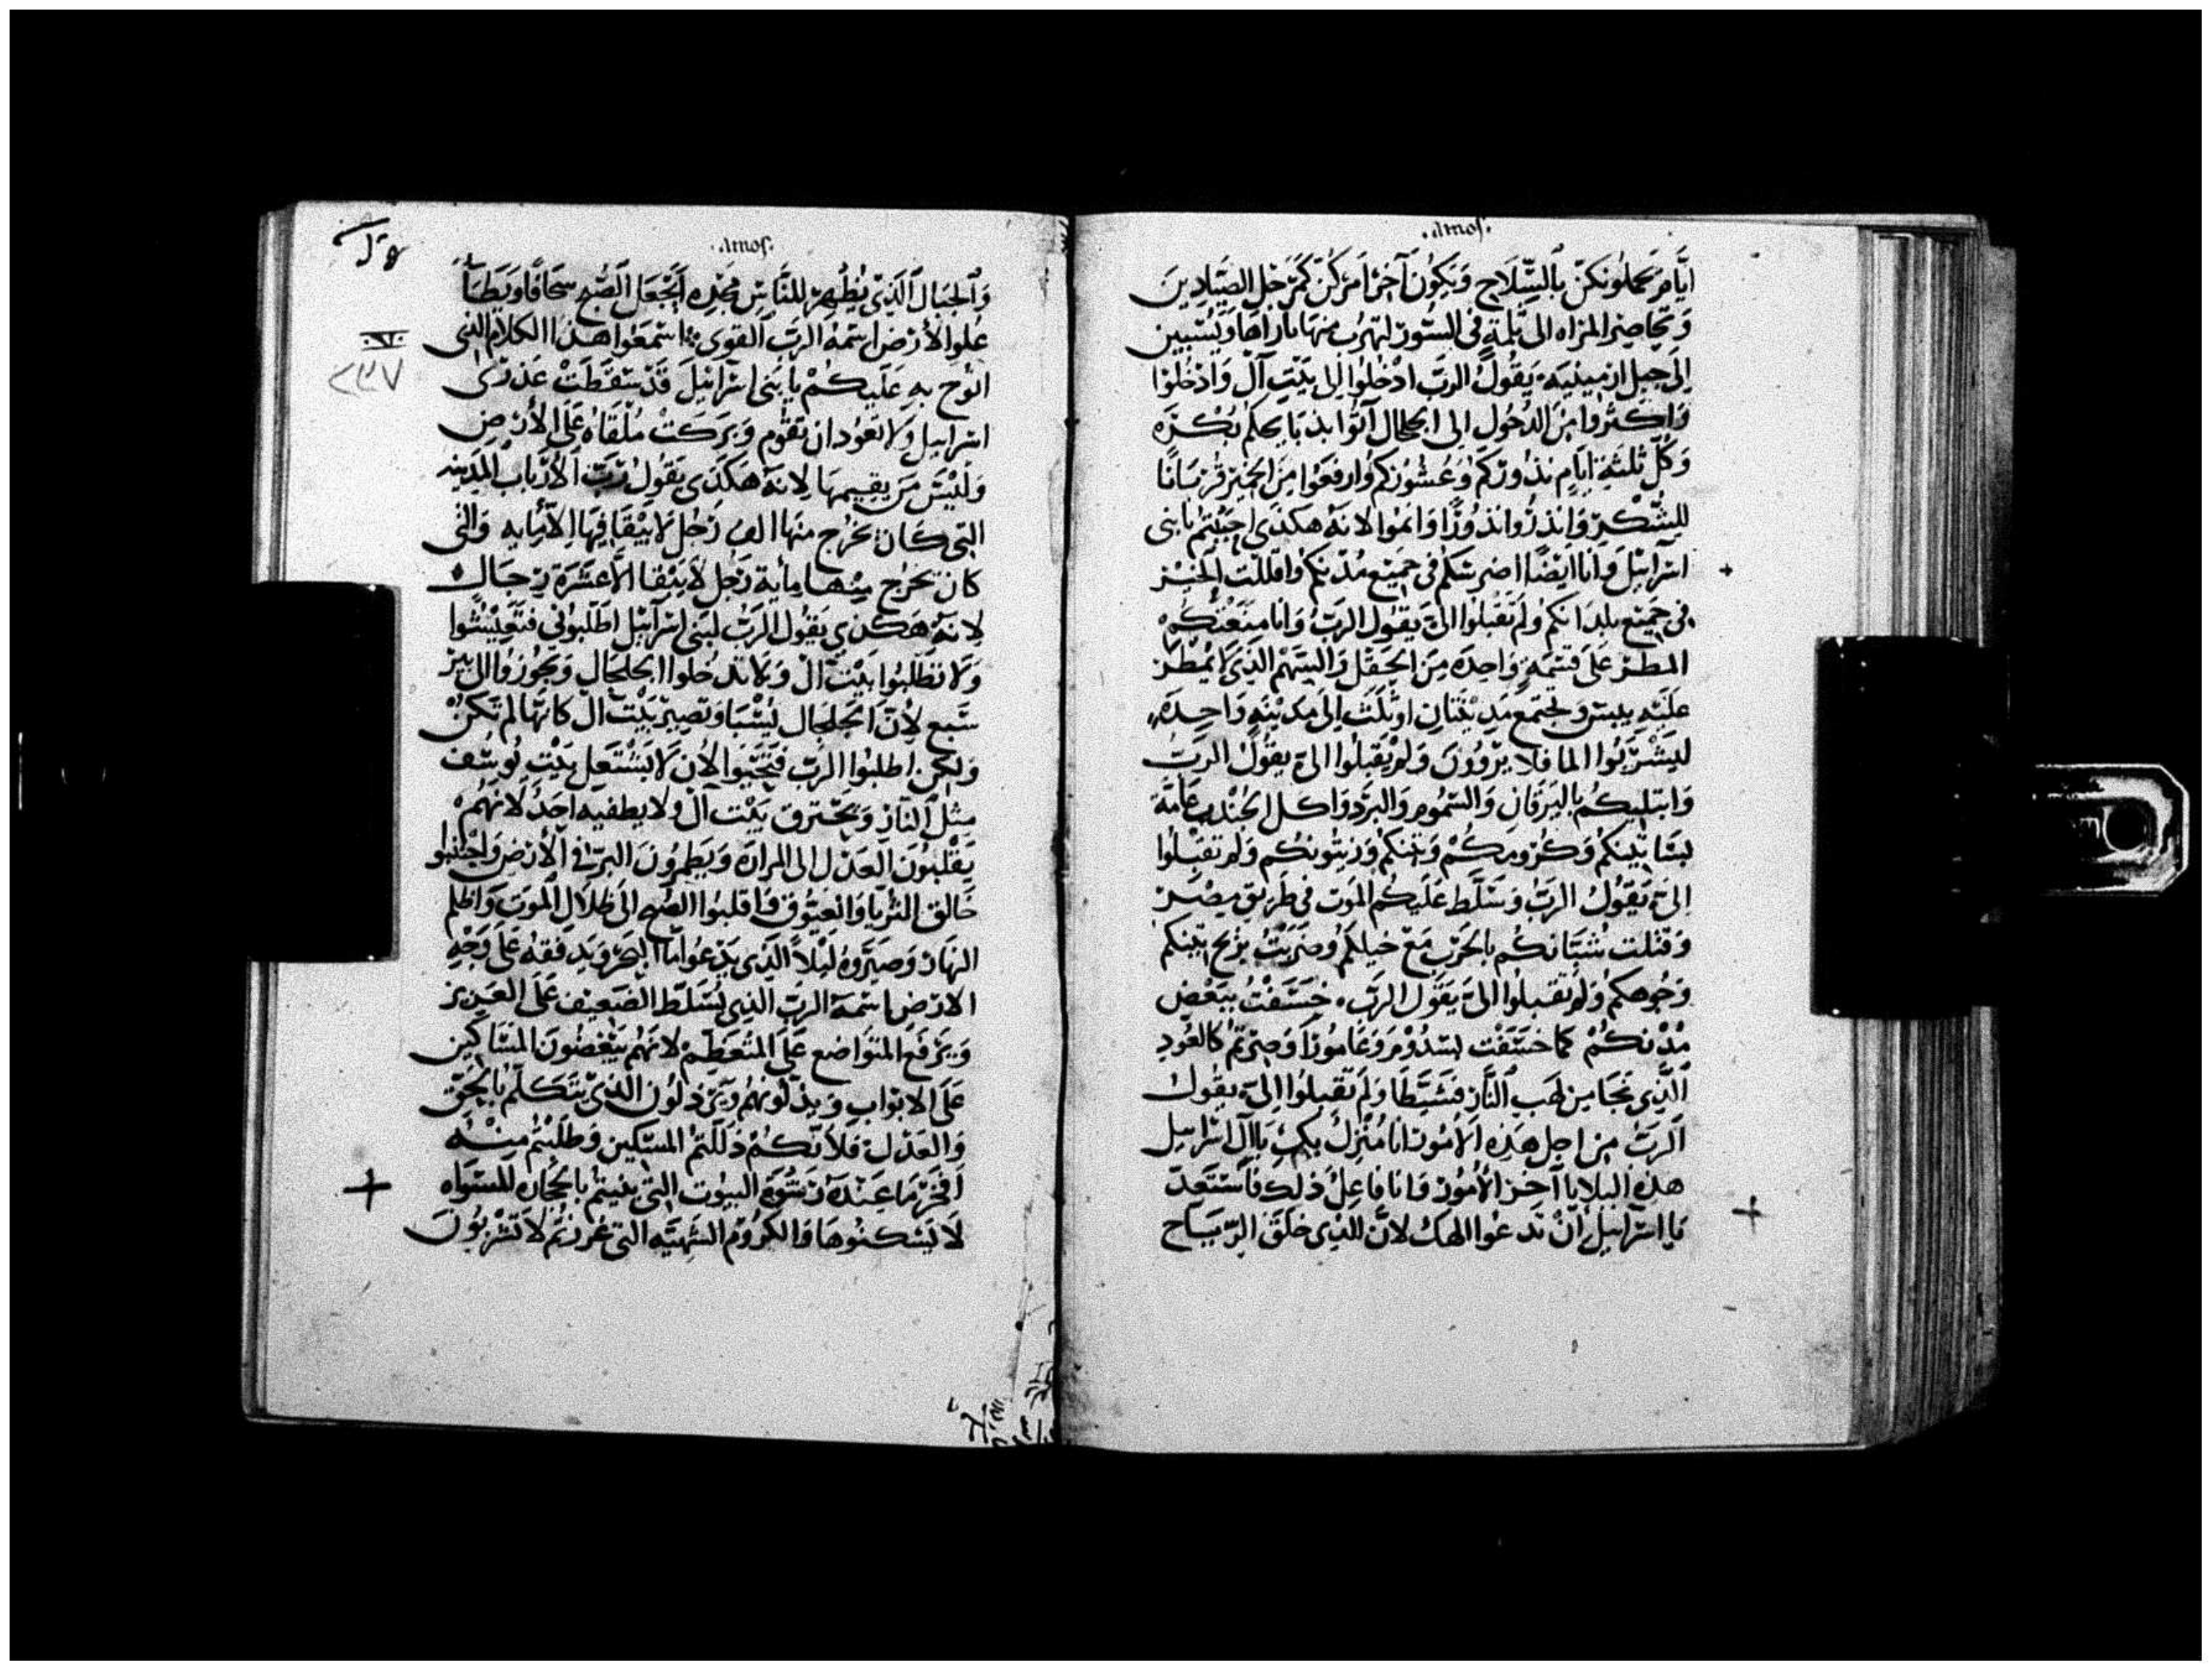 .Amos.
ايَّامٌ يَحملونكن بالسِّلَاحِ وَيَكُون آخر امركن كمرْجل الصيَّادين
الى جبل ارمينيه يَقُولُ الربّ ادْخلوا الى بَيْتِ آلْ وَادْخُلوْا
وَاكثروا مِن الدخُول الى الجلجال آتوا بذبايحكم بُكْرَه
وَكُلّ ثلثةِ ايامٍ نذوركم وَعُشُوركم وارفعوا مِن الخبز قُربَانًا
للِشُّكرِ وَانذرُوا نذوُرًا وَاتموا لانهُ هكذى احببتم يا بنى
اسرَايل وَانا ايْضًا اضرستكم فى جَميع مُدنكم واقللت الخبْز
فى جَميْع بلدانكم وَلم تَقبلوْا الىّ يقول الربّ وَانا منعتكُمْ
المطر عَلى قسْمةٍ وَاحِدَه مِن الحقل وَالسَّهْم الذى لا يُمْطر
عَليْهِ ييبس وتجتمع مَدِينَتَان اوْ ثلث الى مَدينهٍ وَاحِدهِ
ليَشْربُوا الما فلا يَرْوُونَ وَلمْ تقبلوا الىّ يقُولُ الربّ
وَابتليكُم باليرقانِ وَالسَّمُوم وَالبرد وَاكل الجُندب عَامَّة
بسَاتينكم وَكُرُومِكُمْ وَتينكمْ وَزيتُونكم وَلم تقبَلوُا
اِلىّ يَقُولُ الربّ وَسَلَّط عَليكم الموت فى طريْق مصْر
وَقتلت شبَّانكُم بالحَرْب مَعْ خيلكم وضربْتُ بريح نتنكم
وَجُوهكم وَلم تقبلوا الىَّ يَقول الربّ خسَفْتُ ببَعْض
مُدْنكُمْ كما خسَفت بسدُوْم وَعَامُوْرَا وَصِرْتم كالعُودِ
الَّذِى نَجَا مِن لهَب النَّار فتشيَّطَا وَلَم تقبلوا الىّ يقول
الربّ مِن اجل هَذِه الامُور انا مُنْزل بكمْ يَا ال اسْرَايل
هذه البلايا آخر الأمُور فانا فاعِلْ ذلك فاسْتعدّ
يَا اسرَايل ان تَدعُوا الهك لانّ الذى خلق الريَاح
.Amos.
وَالجبَال الَّذِىْ يُظْهِرْ للنَّاسِ مَجْدهِ
علو الارض اسْمهُ الربّ القوى اسْمَعُوا هذا الكلام الذى
انوح بهِ عَليكُمْ يا بَنى اسْرَايل قَدْ سَقطَتْ عَذْرَى
اسرايل وَلا تعُود ان تَقُوم وَبَركَتْ مُلْقَاه عَلى الأرضِ
وَليْسَ مَن يقيمهَا لانهُ هَكَذى يَقول ربّ الأرباب المَدِينه
التى كَان يَخرُج منهَا الف رَجُل لا يَبْقا فيها الا مايه وَالتى
كان يخرُج مِنْها مِايه رَجُل لا يَبْقا الا عَشَرَة رجَال
لانهُ هَكذى يَقُول الربّ لبَنى اسْرَايل اطلبُونى فتَعِيْشُوا
وَلا تطلبُوا بيْت آل وَلا تدخلوا الجلجال وَتجُوزوا الى بير
سَبع لأنّ الجلجال يُسْبَا وَتصِير بَيْت ال كانها لم تكنْ
وَلكن اطلبُوا الربّ فتحيَوا الان لا يَشتعل بَيْت يُوسُف
مِثل النَّار وَتحْترق بَيْت آل وَلا يطفيه احَدٌ لانهُمْ
يَقْلبُونَ العَدل الى المرارَه وَيَطمرُونَ البرّ فى الأرض وَاجْتنبوا
خالق الثريا وَالعيُّوق فَاقلبُوا الصُبح الى ظلال الموت وَاظلم
النهار وَصيَّروهُ ليْلاً الَّذى يَدعُوا مآ البَحْر وَيدفقهُ عَلى وَجْهِ
الارض اسْمهُ الربّ الذى يُسَلّط الضَعِيف عَلى العَزيز
وَيَرفع المتواضع عَلى المتعظّم لانهم يَبْغضُونَ المسَاكين
عَلى الابوَاب وَيذلّونهُم وَيَرْذلُون الذى يتكلّم بالحَقّ
وَالعَدْل فلانّكُمْ ذللتم المسْكين وَطلبتم مِنْهُ
افخر مَا عِنْدَهُ البيُوت التى بنيتم بالحجَاره
لا تَسْكنُوهَا وَالكرُوم الشهِيَّه التى غرستم لا تَشْربُونَ
٢٣٧